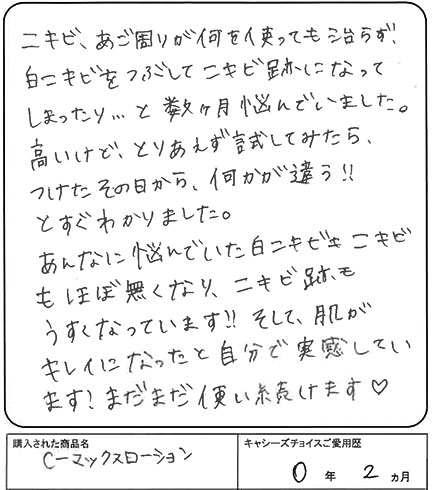 ニキビ、あご周りが何を使っても治らず、
白ニキビをつぶしてニキビ跡になって
しまったり…と数ヶ月悩んでいました。
高いけど、とりあえず試してみたら、
つけたその日から、何かが違う!!
とすぐわかりました。
あんなに悩んでいた白ニキビも ニキビ
もほぼ無くなり、ニキビ跡も
うすくなっています!! そして、肌が
キレイになったと自分で実感してい
ます! まだまだ使い続けます♡
購入された商品名
C-マックスローション
キャシーズチョイスご愛用歴
0 年 2 ヵ月